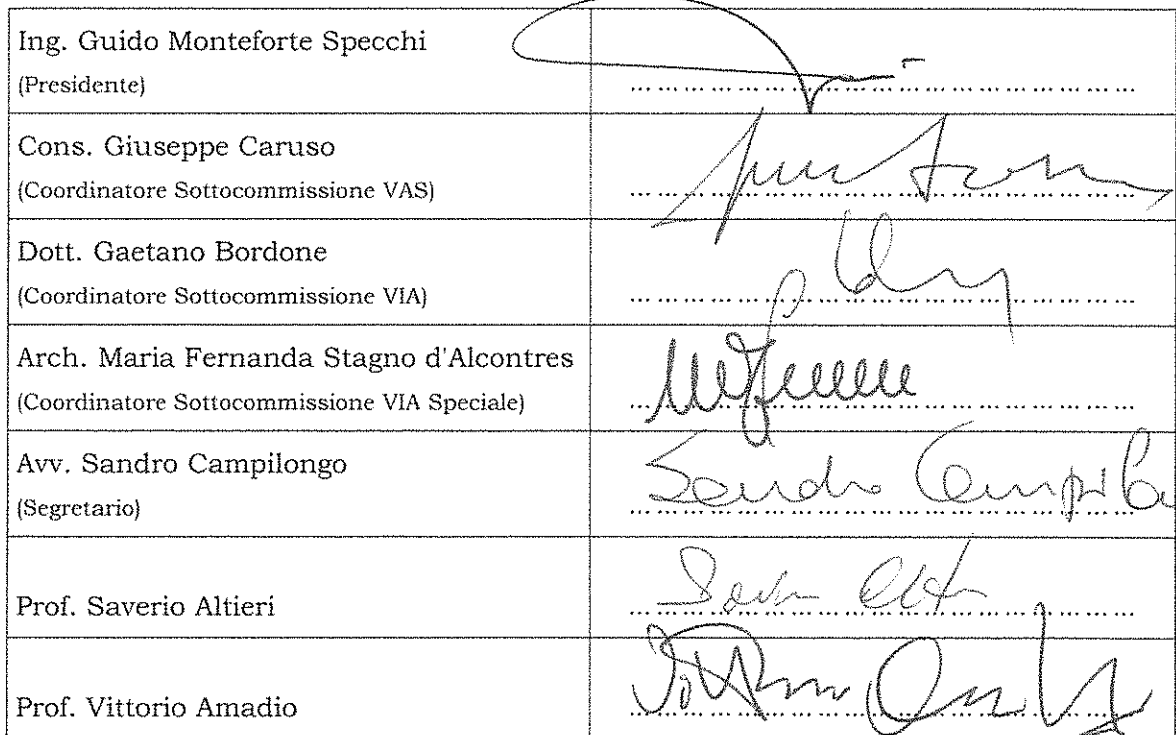 Ing. Guido Monteforte Specchi
(Presidente)
Cons. Giuseppe Caruso
(Coordinatore Sottocommissione VAS)
Dott. Gaetano Bordone
(Coordinatore Sottocommissione VIA)
Arch. Maria Fernanda Stagno d'Alcontres
(Coordinatore Sottocommissione VIA Speciale)
Avv. Sandro Campilongo
(Segretario)
Sandro
Prof. Saverio Altieri
Prof. Vittorio Amadio